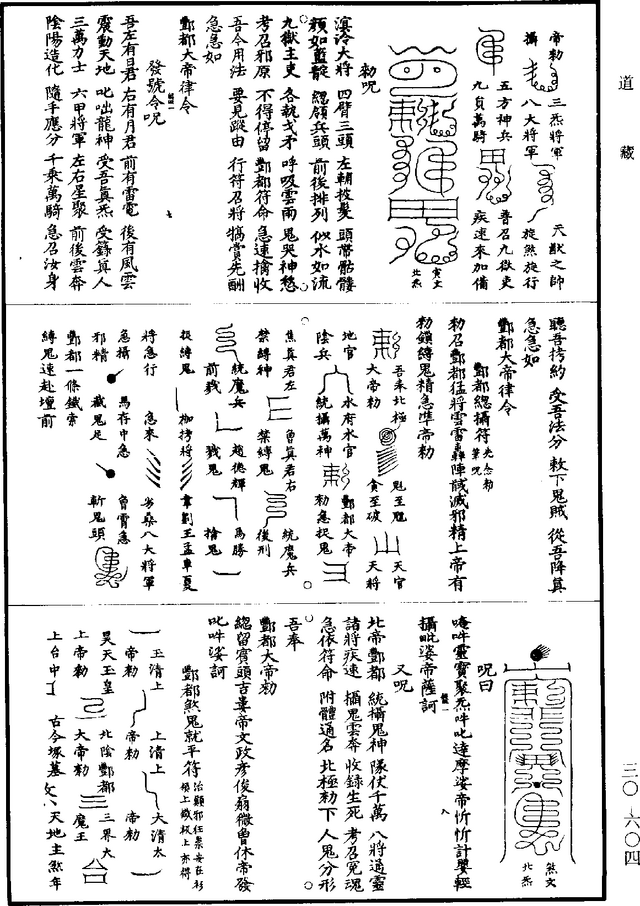 道藏
三〇·六〇四
帝勑 三炁將軍 天猷之師
攝 八大將軍 旋煞旋行
五方神兵 普召九嶽吏
九頁萬騎 疾速來加備
寅文
北炁
勑呪
滇泠大將 四臂三頭 左輔披髮 頭帶骷髏
顏如藍靛 總領兵頭 前後排列 似水如流
九嶽主吏 各執戈矛 呼吸雲雨 鬼哭神愁
考召邪原 不得停留 酆都符命 急速擒收
吾今用法 要見蹤由 行符召將 犒賞先酬
急急如
酆都大帝律令
發號令呪
吾左有日君 右有月君 前有雷電 後有風雲
震動天地 叱咄龍神 受吾真炁 受籙真人
三萬力士 六甲將軍 左右星聚 前後雲奔
陰陽造化 隨手應分 千乘萬騎 急召汝身
聽吾拷約 受吾法分 敕下鬼賊 從吾降真
急急如
酆都大帝律令
酆都總攝符
勑召酆都猛將雲雷轟陣馘滅邪精上帝有
勑鎖縛鬼精急準帝勑
吾奉北極 魁至魒 天官
大帝勑 食至破 天將
地官 水府水官 酆都大帝
陰兵 統攝萬神 勑急捉鬼
焦真君左 魯真君右 統魔兵
禁縛神 禁縛鬼 後刑
統魔兵 趙德輝 馬勝
前戮 戮鬼 擒鬼
捉縛鬼 枷拷將 韋劉王孟車夏
將急行 急來 劣桑八大將軍
急攝 馬存中急 魯霄急
邪精 截鬼足 斬鬼頭
酆都一條鐵索
縛鬼速赴壇前
煞文
北炁
呪曰
唵吽靈寶聚炁吽叱達摩娑帝忻忻計婴輕
攝毗娑帝薩訶
又呪
北帝酆都 統攝鬼神 隊仗千萬 八將通靈
諸將疾速 攝鬼雲奔 收錄生死 考召冤魂
急依符命 附體通名 北極勑下 人鬼分形
吾奉
酆都大帝勑
總留賓頭古婁帝文政彥俊扇微曾休帝發
叱吽娑訶
酆都煞鬼就平符
玉清上 上清上 太清太
帝勑 帝勑 帝勑
昊天玉皇 北陰酆都 三界大
上帝勑 大帝勑 魔王
上台中 古今塚墓 天地主煞年